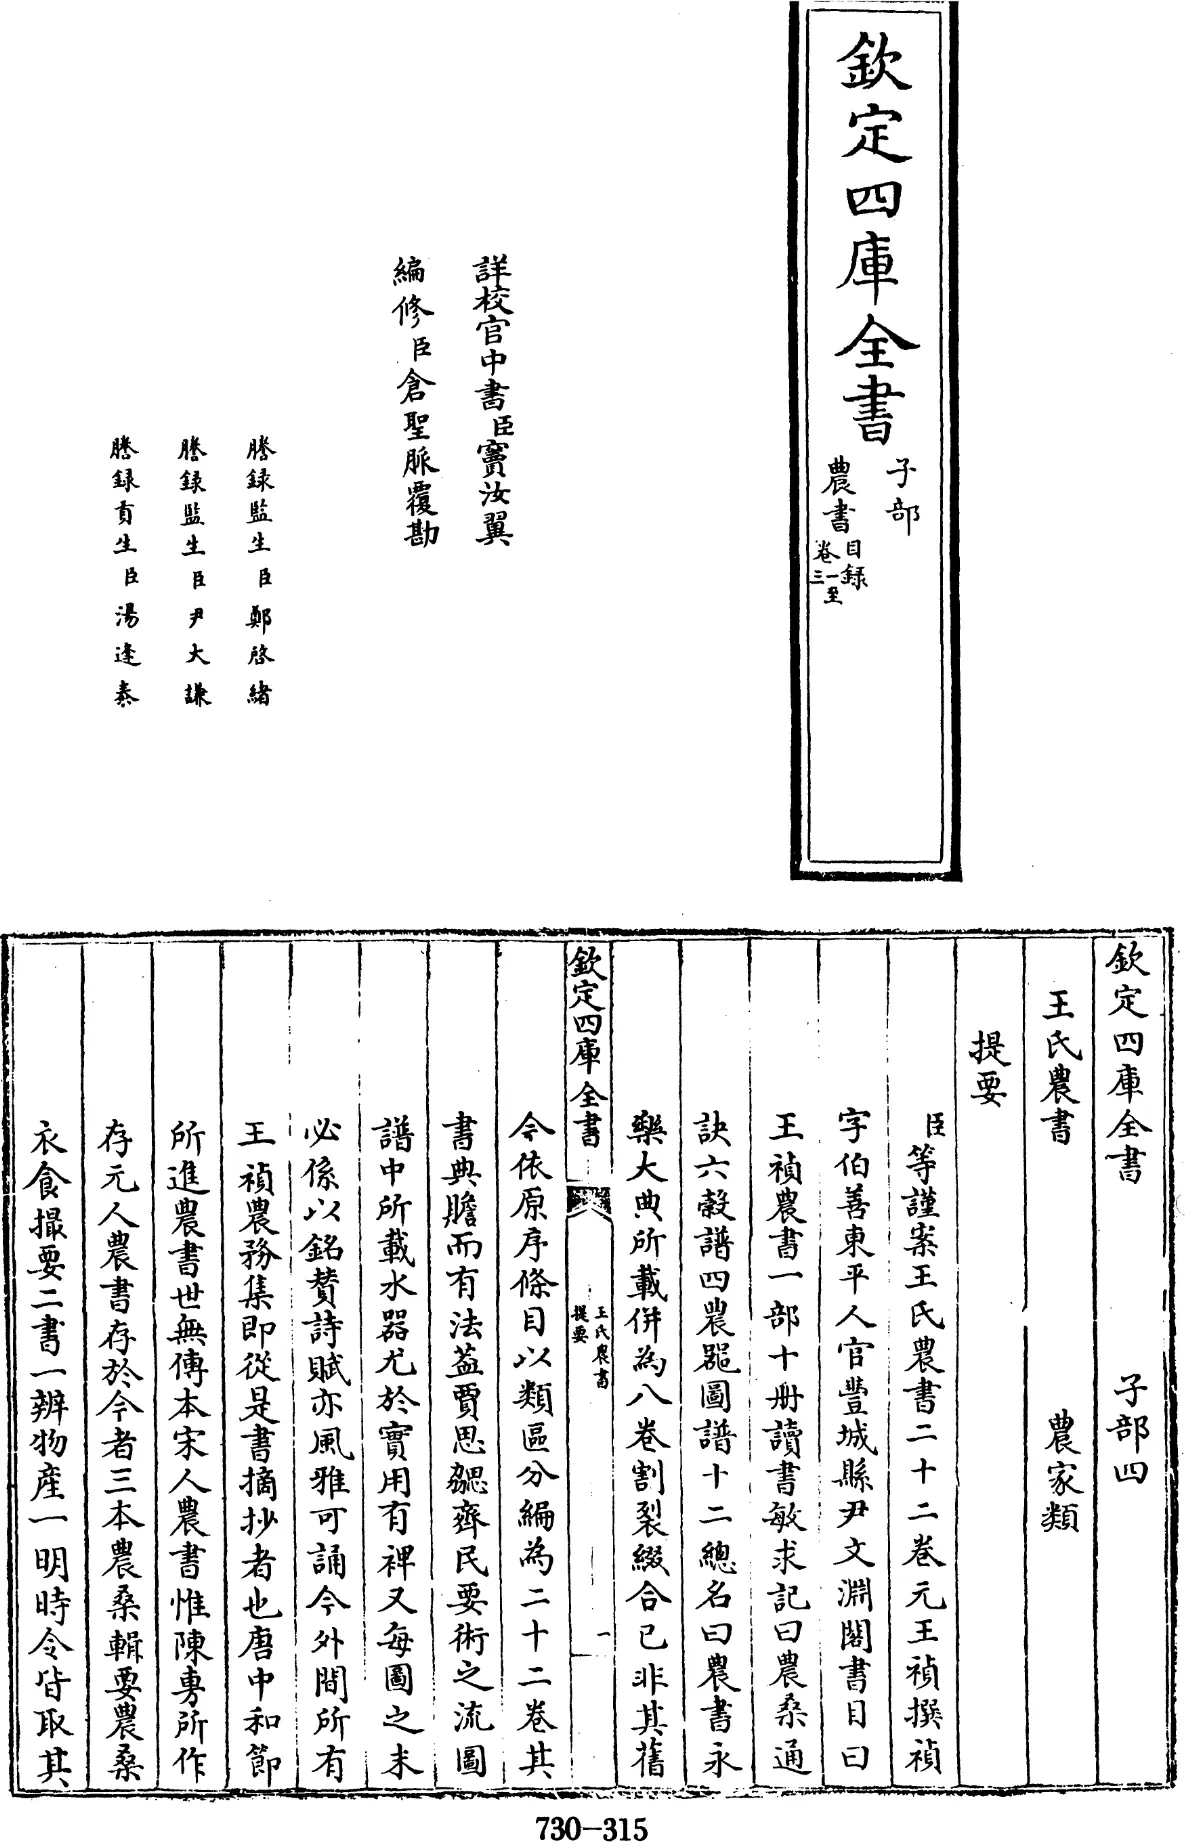 欽定四庫全書
子部
農書
目録
卷一至
三
詳校官中書臣竇汝翼
編修臣倉聖脈覆勘
謄録監生臣鄭啓緒
謄録監生臣尹大謙
謄録貢生臣湯逢泰
欽定四庫全書 子部四
王氏農書 農家類
提要
臣等謹案王氏農書二十二卷元王禎撰禎
字伯善東平人官豐城縣尹文淵閣書目曰
王禎農書一部十册讀書敏求記曰農桑通
訣六穀譜四農器圖譜十二總名曰農書永
樂大典所載併為八卷割裂綴合已非其舊
欽定四庫全書
王氏農書
提要
一
今依原序條目以類區分編為二十二卷其
書典贍而有法葢賈思勰齊民要術之流圖
譜中所載水器尤於實用有裨又每圖之末
必係以銘贊詩賦亦風雅可誦今外間所有
王禎農務集即從是書摘抄者也唐中和節
所進農書世無傳本宋人農書惟陳旉所作
存元人農書存於今者三本農桑輯要農桑
衣食撮要二書一辨物産一明時令皆取其
730-315